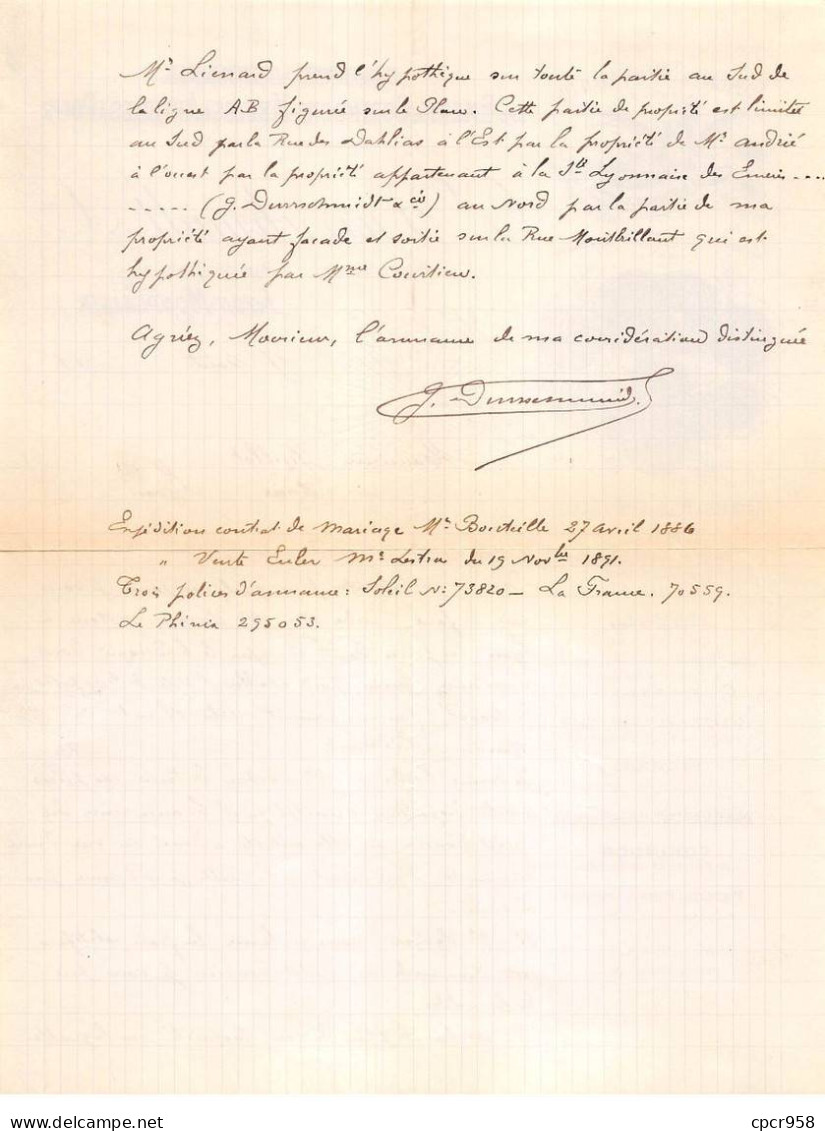 Mr Lienard prend l'hypothèque sur toute la partie au Sud de
la ligne A.B figurée sur le Plan. Cette partie de propriété est limitée
au Sud par la Rue des Dahlias à l'Est par la propriété de Mr Andrié
à l'ouest par la propriété appartenant à la Sté Lyonnaise des Emeris ....
..... (J. Durrschmidt & Cie) au Nord par la partie de ma
propriété ayant façade et sortie sur la Rue Montbrillant qui est
hypothéquée par Mme Courtieu.
Agréez, Monsieur, l'assurance de ma considération distinguée
J. Durrschmidt
Expédition contrat de mariage Me Bouteille 27 avril 1886
" Vente Euler Me Lestra du 19 Novbre 1891.
Trois polices d'assurance : Soleil No 73820 - La France. 70559.
Le Phénix 295053.
cpcr958